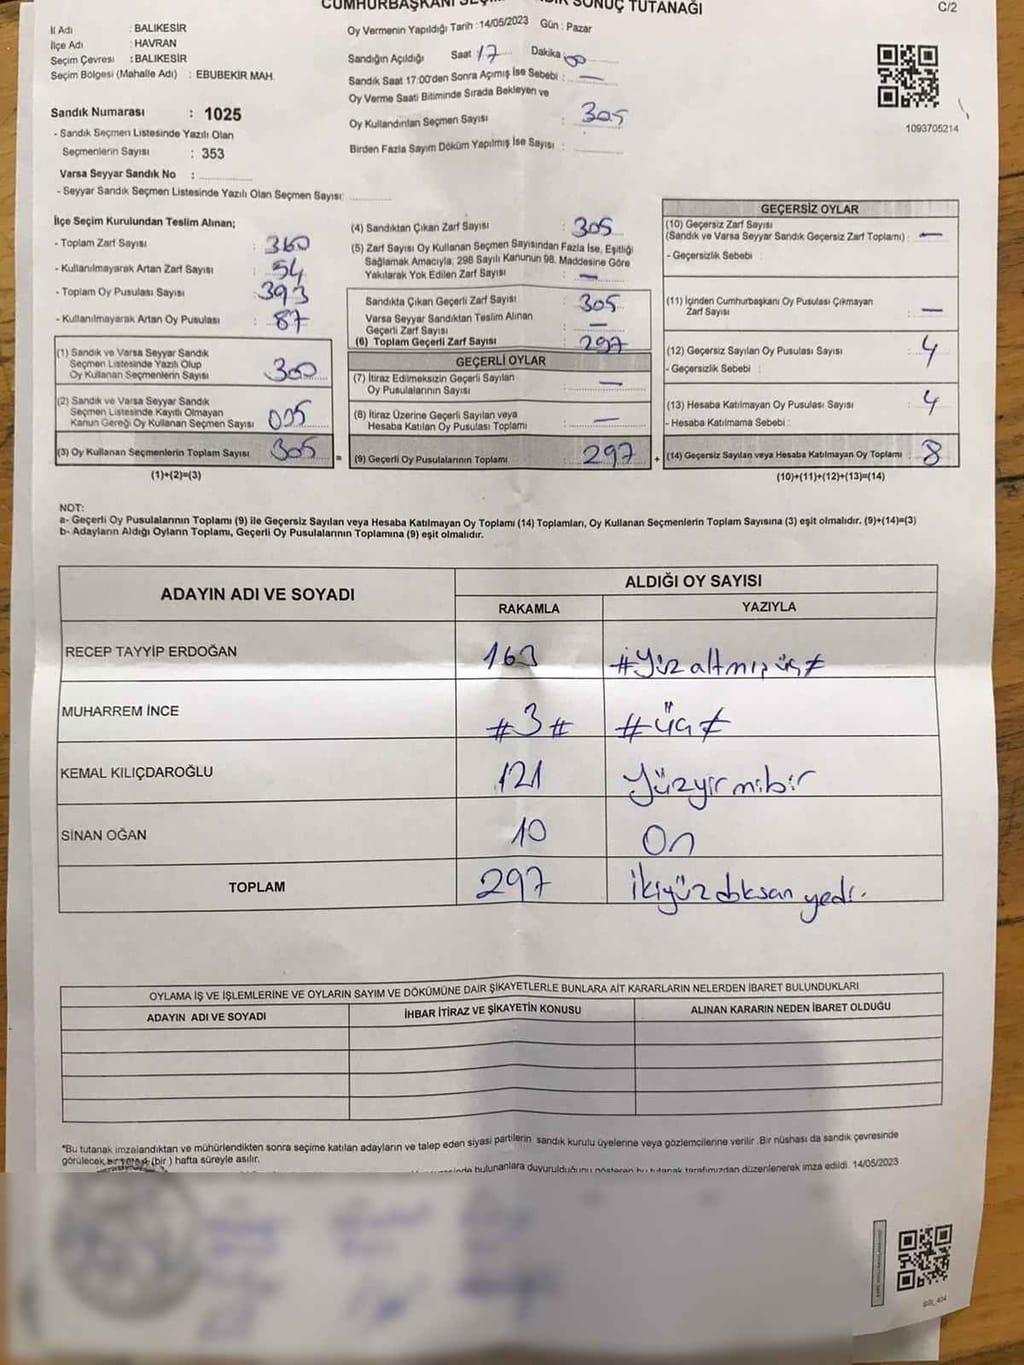 SONUÇ TUTANAĞI
C/2
İl Adı : BALIKESİR
İlçe Adı : HAVRAN
Seçim Çevresi : BALIKESİR
Seçim Bölgesi (Mahalle Adı) : EBUBEKİR MAH.
Sandık Numarası : 1025
- Sandık Seçmen Listesinde Yazılı Olan
Seçmenlerin Sayısı : 353
Varsa Seyyar Sandık No :
- Seyyar Sandık Seçmen Listesinde Yazılı Olan Seçmen Sayısı:
Oy Vermenin Yapıldığı Tarih : 14/05/2023 Gün : Pazar
Sandığın Açıldığı Saat 17 Dakika 00
Sandık Saat 17:00'den Sonra Açmış İse Sebebi : —
Oy Verme Saati Bitiminde Sırada Bekleyen ve
Oy Kullandırılan Seçmen Sayısı : 305
Birden Fazla Sayım Döküm Yapılmış İse Sayısı :
1093705214
İlçe Seçim Kurulundan Teslim Alınan;
- Toplam Zarf Sayısı : 360
- Kullanılmayarak Artan Zarf Sayısı : 54
- Toplam Oy Pusulası Sayısı : 393
- Kullanılmayarak Artan Oy Pusulası : 87
(1) Sandık ve Varsa Seyyar Sandık
Seçmen Listesinde Yazılı Olup
Oy Kullanan Seçmenlerin Sayısı 300
(2) Sandık ve Varsa Seyyar Sandık
Seçmen Listesinde Kayıtlı Olmayan
Kanun Gereği Oy Kullanan Seçmen Sayısı 005
(3) Oy Kullanan Seçmenlerin Toplam Sayısı 305 =
(1)+(2)=(3)
(4) Sandıktan Çıkan Zarf Sayısı : 305
(5) Zarf Sayısı Oy Kullanan Seçmen Sayısından Fazla İse, Eşitliği
Sağlamak Amacıyla, 298 Sayılı Kanunun 98. Maddesine Göre
Yakılarak Yok Edilen Zarf Sayısı : —
Sandıkta Çıkan Geçerli Zarf Sayısı : 305
Varsa Seyyar Sandıktan Teslim Alınan
Geçerli Zarf Sayısı : —
(6) Toplam Geçerli Zarf Sayısı : 297
GEÇERLİ OYLAR
(7) İtiraz Edilmeksizin Geçerli Sayılan
Oy Pusulalarının Sayısı : —
(8) İtiraz Üzerine Geçerli Sayılan veya
Hesaba Katılan Oy Pusulası Toplamı : —
(9) Geçerli Oy Pusulalarının Toplamı 297 +
GEÇERSİZ OYLAR
(10) Geçersiz Zarf Sayısı
(Sandık ve Varsa Seyyar Sandık Geçersiz Zarf Toplamı) : —
- Geçersizlik Sebebi :
(11) İçinden Cumhurbaşkanı Oy Pusulası Çıkmayan
Zarf Sayısı : —
(12) Geçersiz Sayılan Oy Pusulası Sayısı : 4
- Geçersizlik Sebebi :
(13) Hesaba Katılmayan Oy Pusulası Sayısı : 4
- Hesaba Katılmama Sebebi :
(14) Geçersiz Sayılan veya Hesaba Katılmayan Oy Toplamı : 8
(10)+(11)+(12)+(13)=(14)
NOT:
a- Geçerli Oy Pusulalarının Toplamı (9) ile Geçersiz Sayılan veya Hesaba Katılmayan Oy Toplamı (14) Toplamları, Oy Kullanan Seçmenlerin Toplam Sayısına (3) eşit olmalıdır. (9)+(14)=(3)
b- Adayların Aldığı Oyların Toplamı, Geçerli Oy Pusulalarının Toplamına (9) eşit olmalıdır.
ADAYIN ADI VE SOYADI ALDIĞI OY SAYISI
RAKAMLA YAZIYLA
RECEP TAYYİP ERDOĞAN 163 #Yüz altmış üç#
MUHARREM İNCE #3# #üç#
KEMAL KILIÇDAROĞLU 121 Yüzyirmibir
SİNAN OĞAN 10 On
TOPLAM 297 ikiyüzdoksan yedi.
OYLAMA İŞ VE İŞLEMLERİNE VE OYLARIN SAYIM VE DÖKÜMÜNE DAİR ŞİKAYETLERLE BUNLARA AİT KARARLARIN NELERDEN İBARET BULUNDUKLARI
ADAYIN ADI VE SOYADI İHBAR İTİRAZ VE ŞİKAYETİN KONUSU ALINAN KARARIN NEDEN İBARET OLDUĞU
*Bu tutanak imzalandıktan ve mühürlendikten sonra seçime katılan adayların ve talep eden siyasi partilerin sandık kurulu üyelerine veya gözlemcilerine verilir .Bir nüshası da sandık çevresinde
görülecek bir yere (bir ) hafta süreyle asılır.
bulunanlara duyurulduğunu gösteren bu tutanak tarafımızdan düzenlenerek imza edildi. 14/05/2023